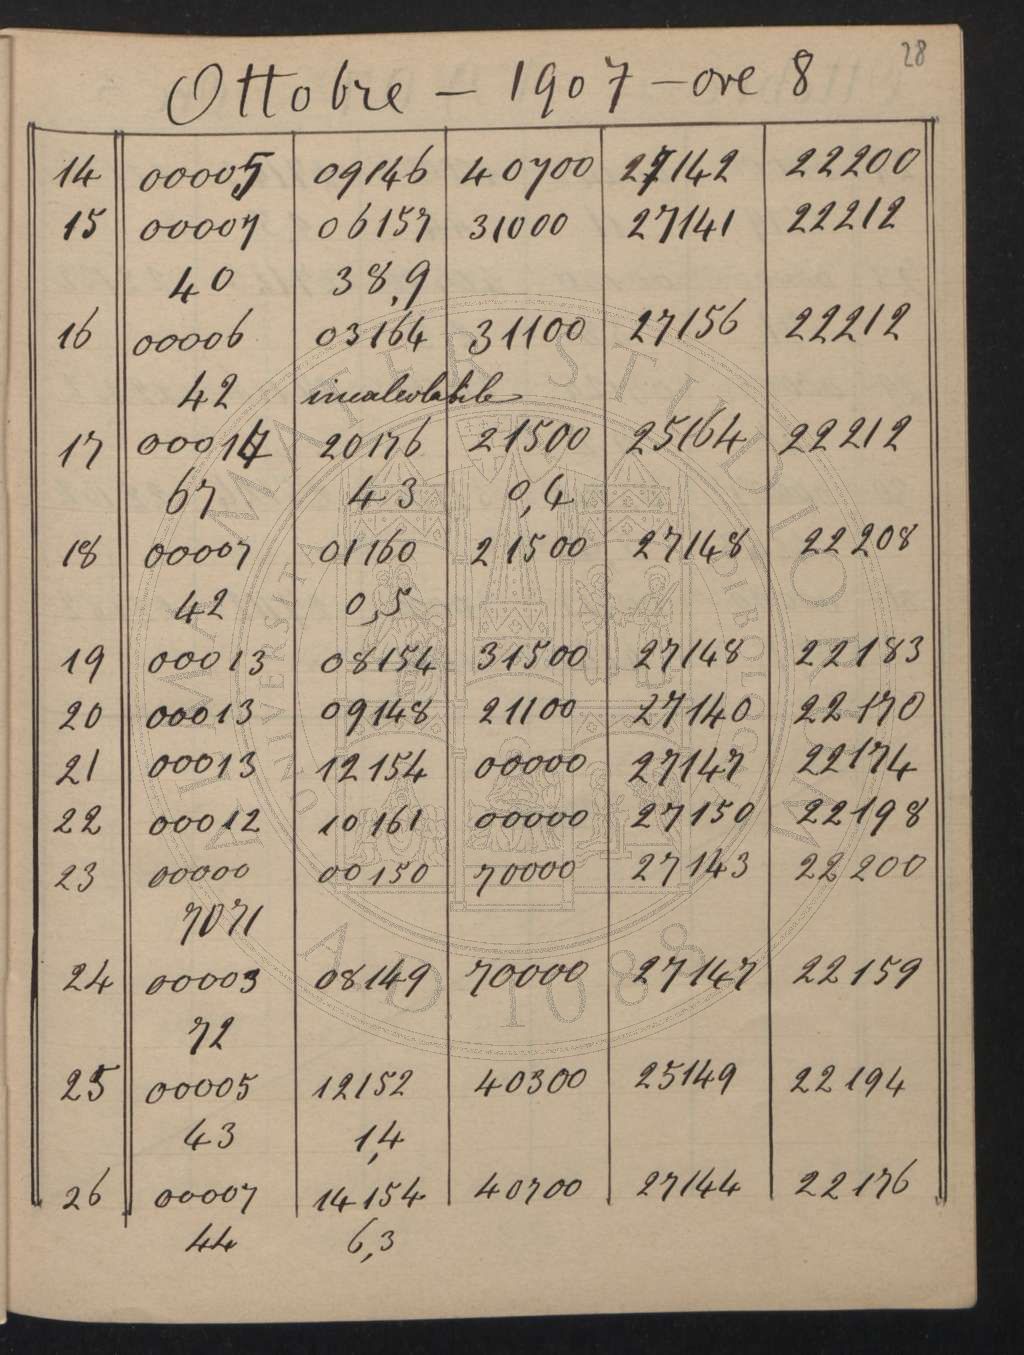 28
Ottobre – 1907 – ore 8
14 00005 09146 40700 27142 22200
15 00007 06157 31000 27141 22212
40 38,9
16 00006 03164 31100 27156 22212
42 incalcolabile
17 00017 20176 21500 25164 22212
67 43 0,4
18 00007 01160 21500 27148 22208
42 0,5
19 00013 08154 31500 27148 22183
20 00013 09148 21100 27140 22170
21 00013 12154 00000 27147 22174
22 00012 10161 00000 27150 22198
23 00000 00150 70000 27143 22200
7071
24 00003 08149 70000 27147 22159
72
25 00005 12152 40300 25149 22194
43 1,4
26 00007 14154 40700 27144 22176
44 6,3
ALMA MATER STUDIORUM
A.D. 1088